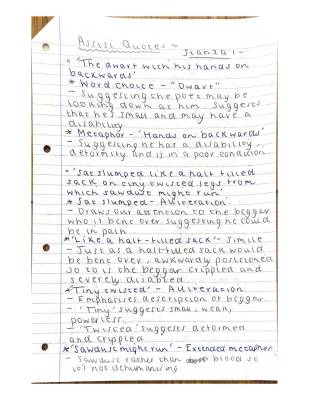 Assisi Quotes ~
Stanza 1 -
• 'The dwarf with his hands on
backwards'
* Word choice - "Dwarf"
- Suggesting the poet may be
looking down at him. Suggests
that he's small and may have a
disability.
* Metaphor - 'Hands on backwards'
- Suggesting he has a disability,
deformity and is in a poor condition
• 'Sat slumped like a half filled
sack on tiny twisted legs from
which sawdust might run'
* Sat slumped - Alliteration.
- Draws our attention to the beggar
who it bent over suggesting he could
be in pain.
* 'Like a half-filled sack' - Simile
- Just as a half-filled sack would
be bent over, awkwardly positioned
so to is the beggar crippled and
severely disabled
* 'Tiny twisted' - Alliteration
- Emphasises description of beggar.
- 'Tiny' suggests small, weak,
powerless.
- 'Twisted' suggests deformed
and crippled
* 'Sawdust might run' - Extended metaphor
- Sawdust rather than blood so
it's not dehumanising